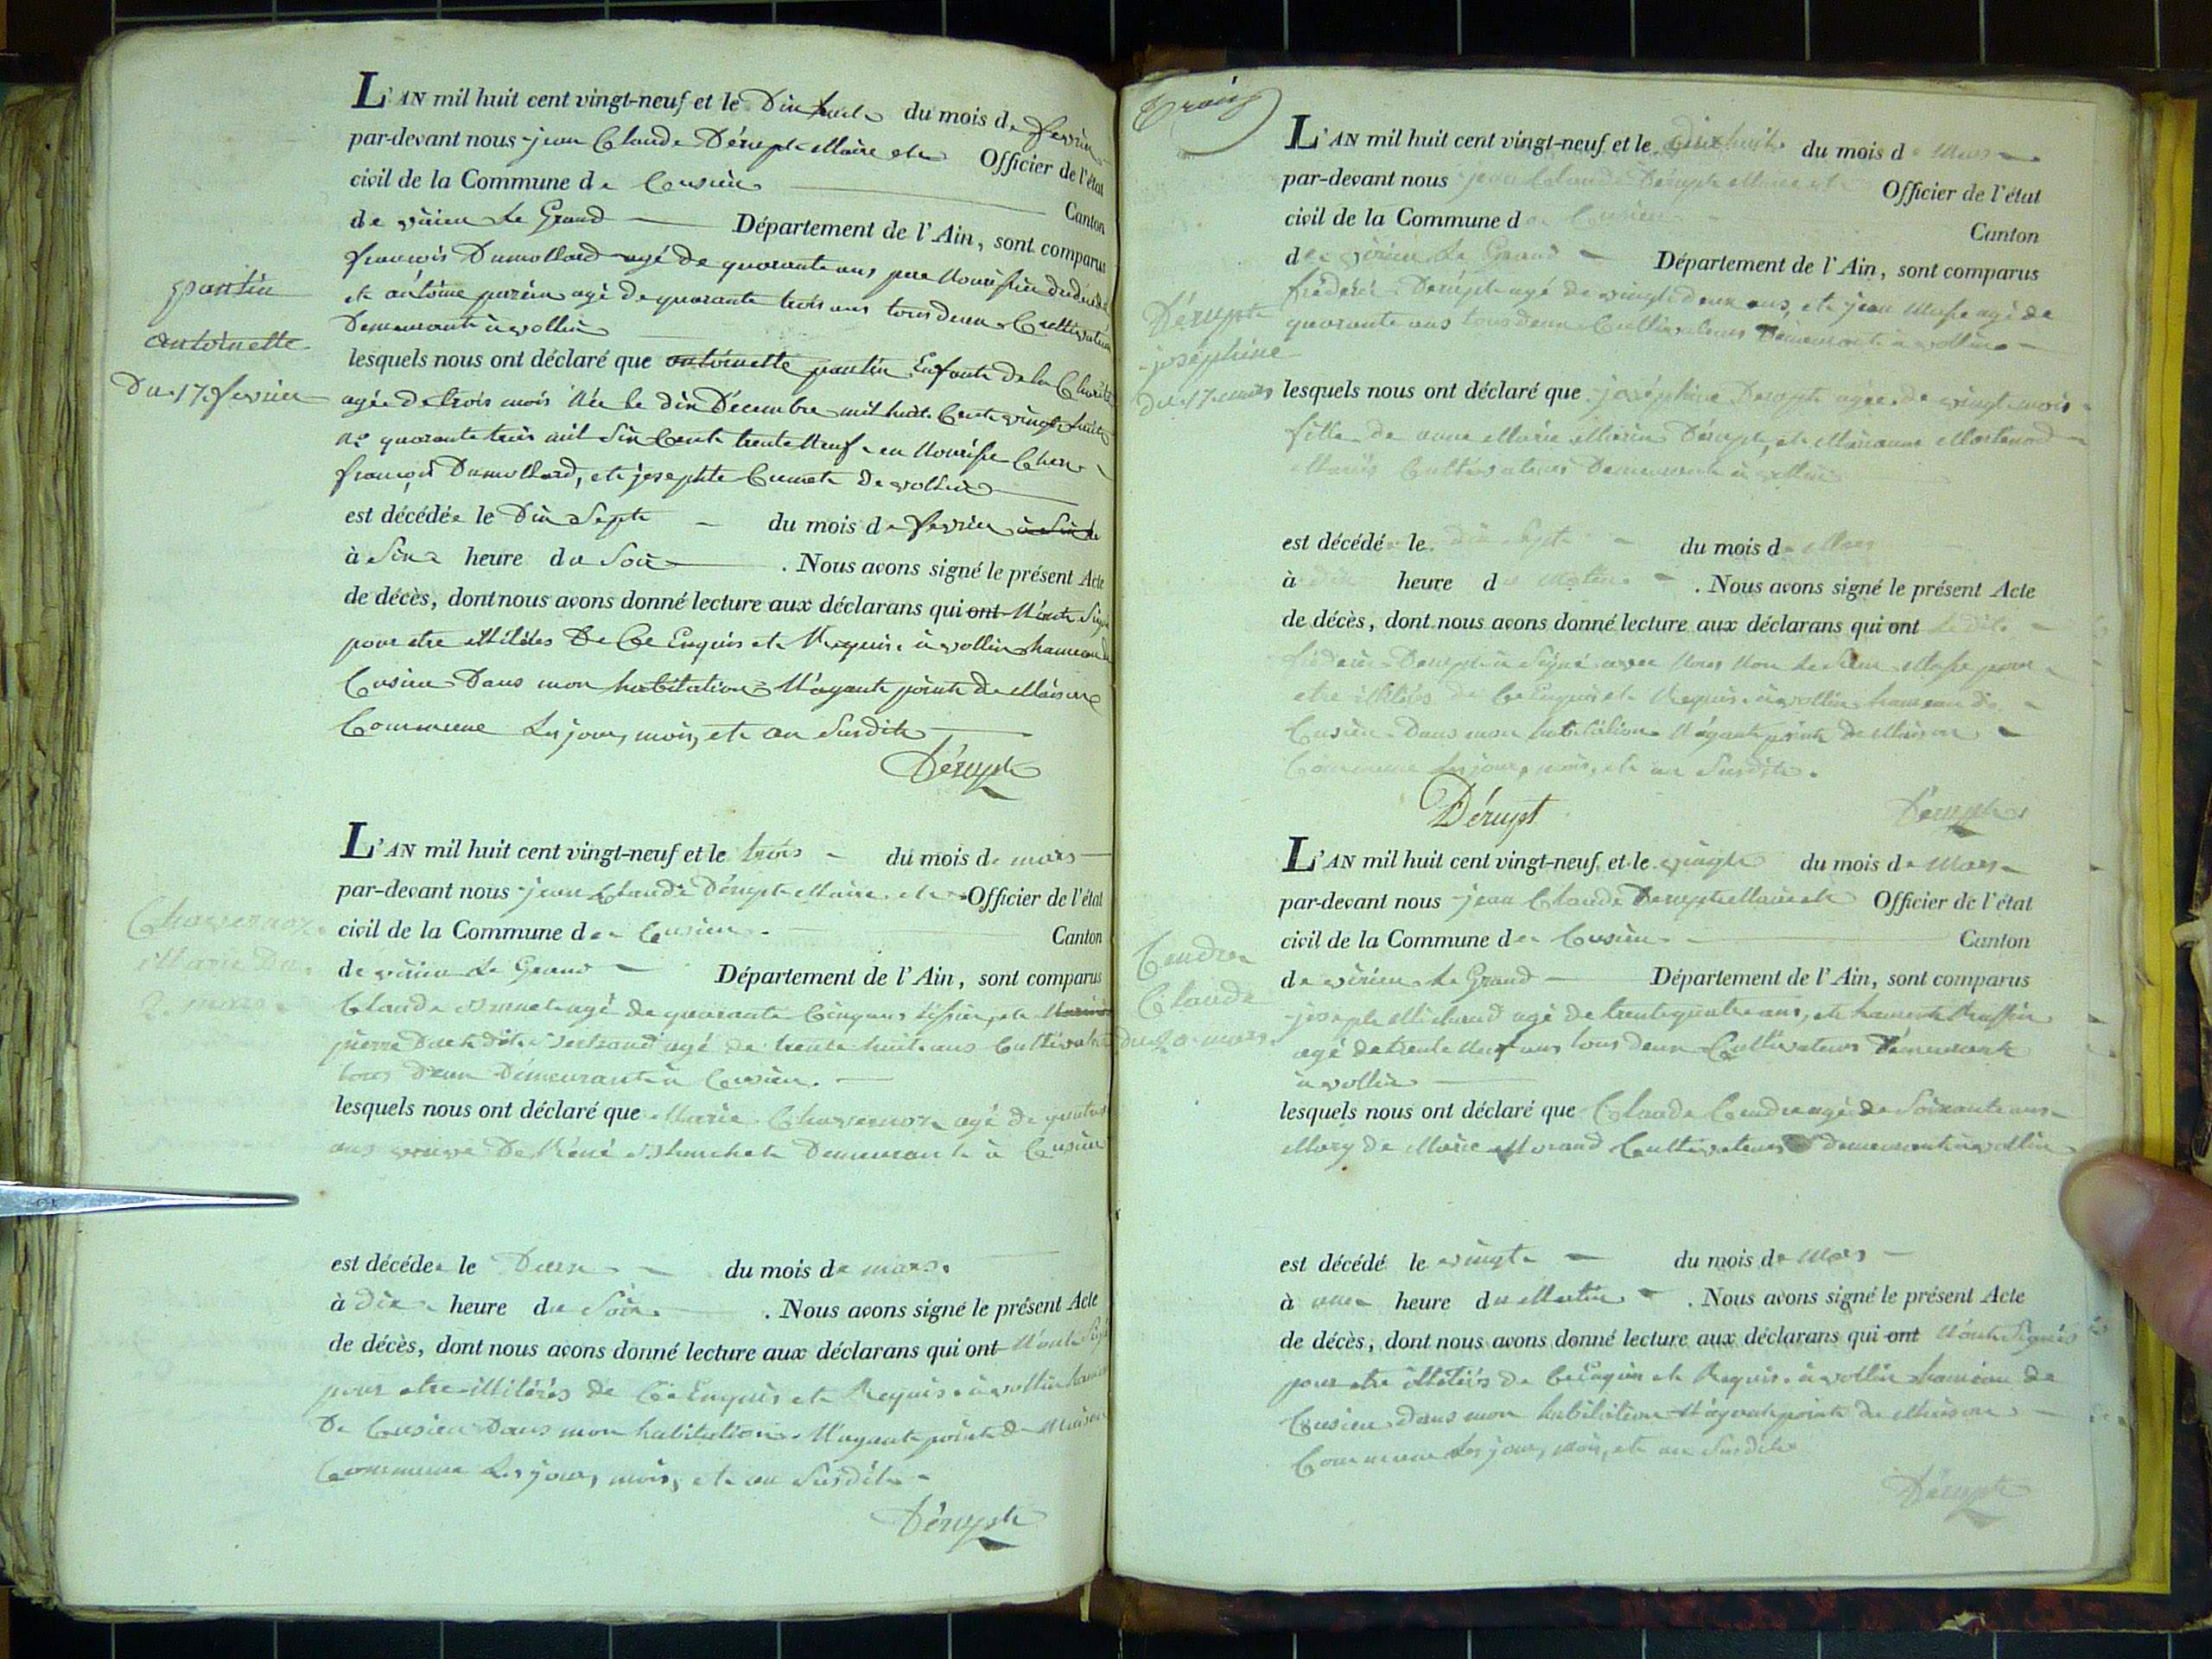 L'AN mil huit cent vingt-neuf et le Dix huit du mois de fevrier
par-devant nous jean Claude Dérupt Maire et Officier de l'état
civil de la Commune de Cusieu Canton
de virieu Le Grand Département de l'Ain, sont comparus
françois Dumollard agé de quarante ans pere Nourissier
et antoine agé de quarante trois ans tous deux Cultivateurs
Demeurant à vollien
pantin
antoinette
Du 17 fevrier
lesquels nous ont déclaré que antoinette pantin Enfante de la Charité
agée de trois mois Née le dix Décembre mil huit Cent vingt huit
N° quarante trois mil Six Cent trente Neuf en Nourisse Chez
françois Dumollard, et josephte Cumet De vollien
est décédée le Dix Sept du mois de fevrier à Six h
à Six heure du Soir . Nous avons signé le présent Acte
de décès, dont nous avons donné lecture aux déclarans qui ont N'ont Signé
pour etre illitéres De Ce Enquis et Requis. à vollien hameau de
Cusieu Dans mon habitation N'ayant point de Maison
Commune Les jour, mois, et an Susdit
Dérupt
L'AN mil huit cent vingt-neuf et le trois du mois de mars
par-devant nous jean Claude Dérupt Maire et Officier de l'état
civil de la Commune de Cusieu Canton
de virieu Le Grand Département de l'Ain, sont comparus
Claude agé de quarante Cinq ans tissier, et
pierre dit Bertrand agé de trente huit ans Cultivateur
tous deux Démeurant à Cusieu.
Chavernoz
Marie Du
2 mars
lesquels nous ont déclaré que Marie Chavernoz agé de
ans veuve De Réné Blanchet Demeurante à Cusieu
est décédée le Deux du mois de mars.
à dix heure du Soir . Nous avons signé le présent Acte
de décès, dont nous avons donné lecture aux déclarans qui ont N'ont Signé
pour etre illitérés de Ce Enquis et Requis. à vollien hameau
De Cusieu Dans mon habitation N'ayant point de Maison
Commune Les jour, mois, et an Susdit
Dérupt
Trois
L'AN mil huit cent vingt-neuf et le dix huit du mois de Mars
par-devant nous jean Claude Dérupt Maire et Officier de l'état
civil de la Commune de Cusieu Canton
de virieu Le Grand Département de l'Ain, sont comparus
frédéric Dérupt agé de vingt deux ans, et jean Masse agé de
quarante ans tous deux Cultivateurs Demeurant à vollien
Dérupt
joséphine
du 17 mars
lesquels nous ont déclaré que joséphine Derupt agée de vingt mois
fille de anne Marie Dérupt, et Marianne
Mariés Cultivateurs Demeurant à vollien
est décédée le dix Sept du mois de Mars
à dix heure du Matin . Nous avons signé le présent Acte
de décès, dont nous avons donné lecture aux déclarans qui ont Le dit
frédéric Derupt à Signé avec Nous Non Le Sieur Masse pour
etre illitéré de Ce Enquis et Requis. à vollien hameau de
Cusieu Dans mon habitation N'ayant point de Maison
Commune Les jour, mois, et an Susdit.
Dérupt Dérupt
L'AN mil huit cent vingt-neuf et le vingt du mois de Mars
par-devant nous jean Claude Derupt Maire et Officier de l'état
civil de la Commune de Cusieu Canton
de virieu Le Grand Département de l'Ain, sont comparus
joseph Michaud agé de trente quatre ans, et
agé de trente Neuf ans tous deux Cultivateurs Démeurant
à vollien
Cendre
Claude
du 20 mars
lesquels nous ont déclaré que Claude Cendre agé de Soixante ans
Mary de Marie Morand Cultivateurs demeurant à vollien
est décédé le vingt du mois de Mars
à une heure du Matin . Nous avons signé le présent Acte
de décès, dont nous avons donné lecture aux déclarans qui ont N'ont Signés
pour etre illitérés de Ce Enquis et Requis. à vollien hameau de
Cusieu dans mon habitation N'ayant point de Maison
Commune Les jour, mois, et an Susdit
Dérupt